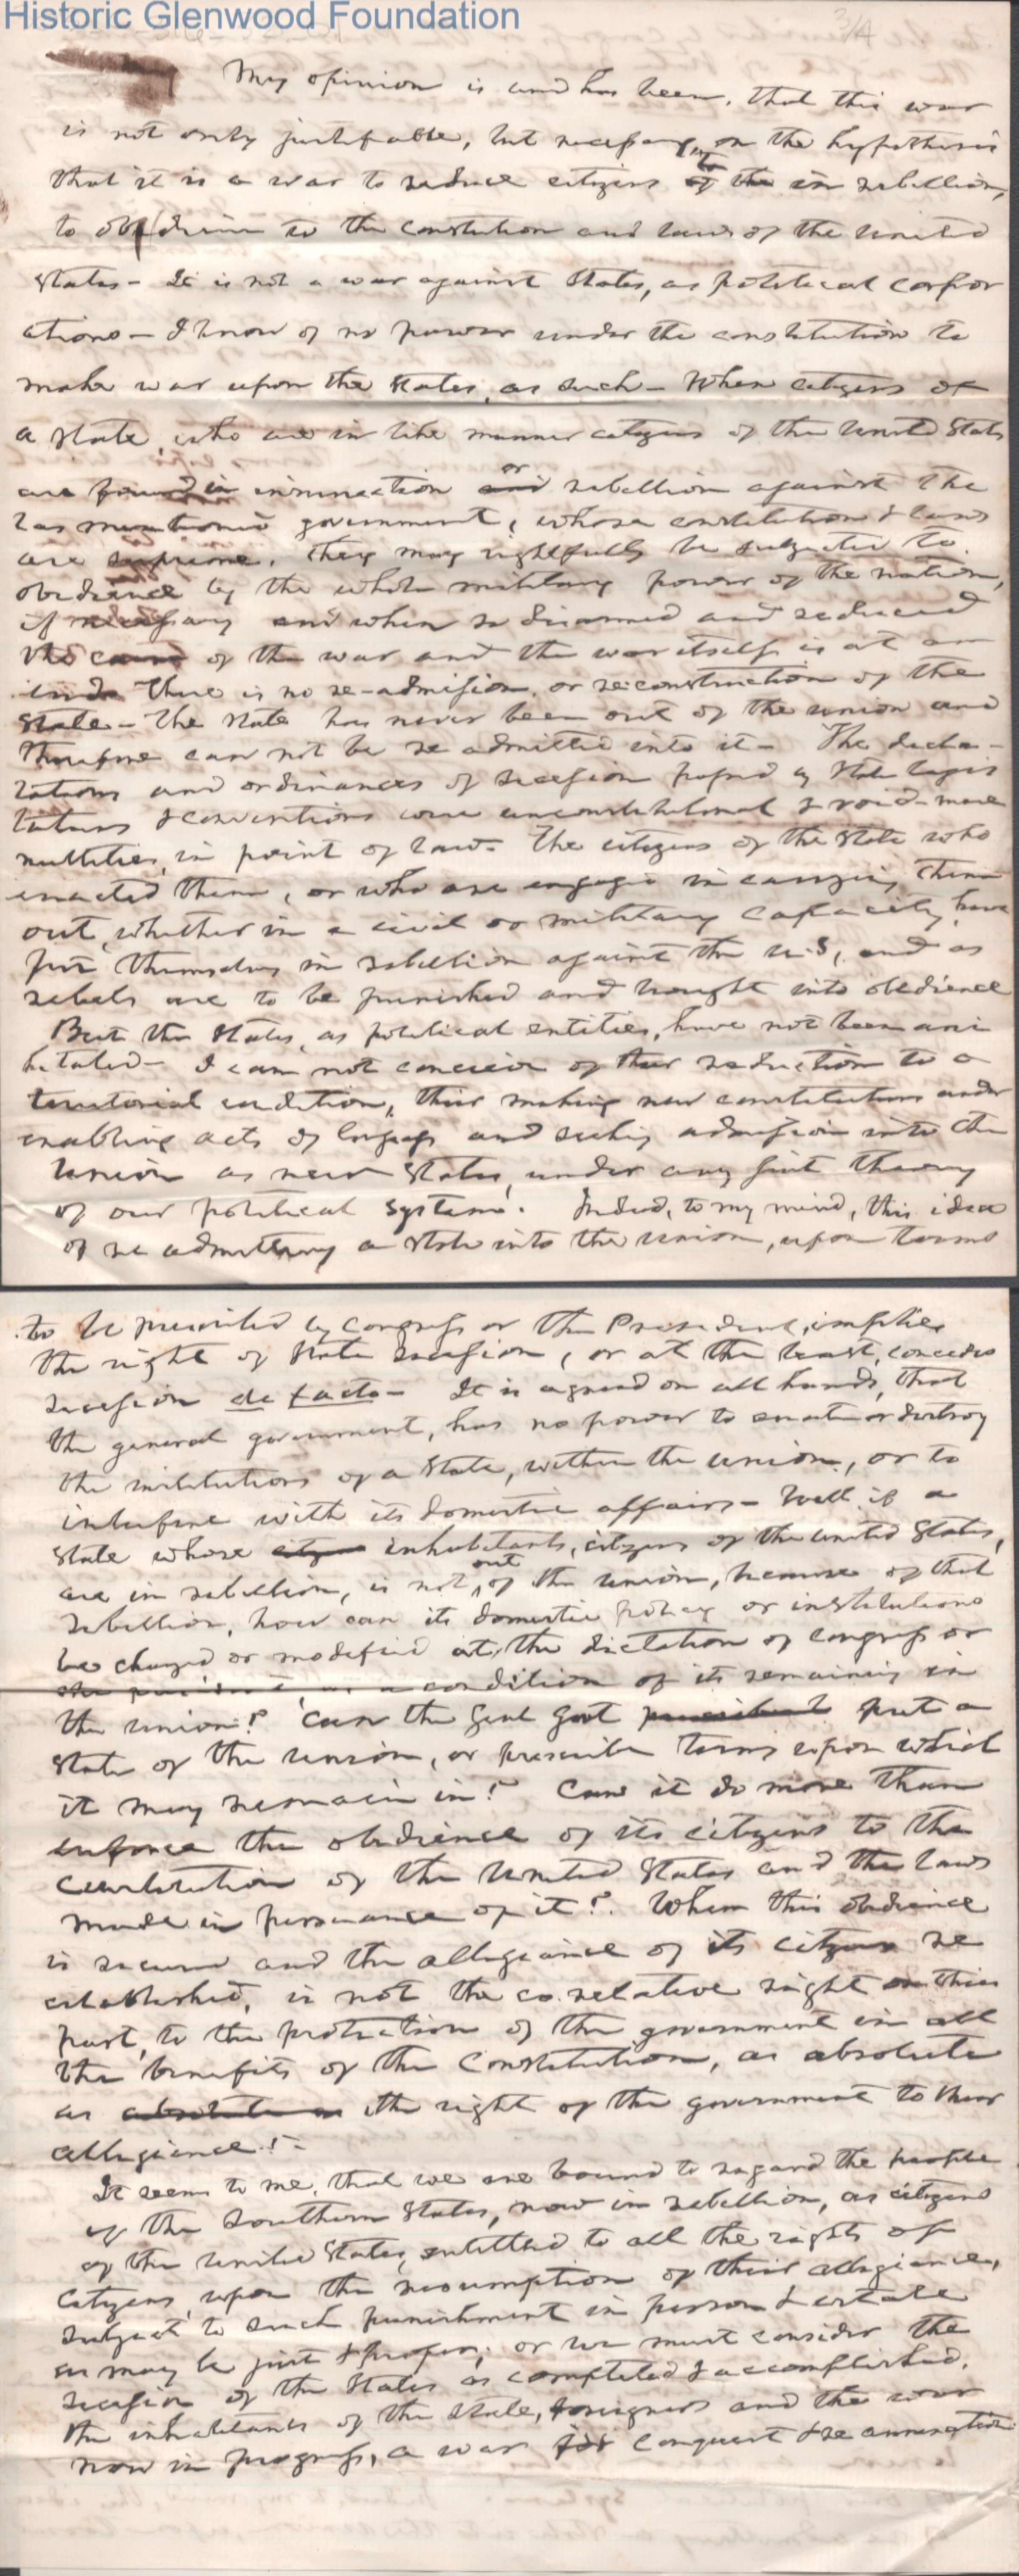 Historic Glenwood Foundation
3/4
My opinion is and has been, that this war
is not only justifiable, but necessary, on the hypothesis
that it is a war to reduce citizens in rebellion,
to obedience to the constitution and laws of the United
States - It is not a war against States, as political corpor
ations - I know of no power under the constitution to
make war upon the States, as such - When citizens of
a State, who are in like manner citizens of the United States
are found in insurrection or rebellion against the
last mentioned government, whose constitution & laws
are supreme, they may rightfully be subjected to
obedience by the whole military power of the nation,
if necessary and when so disarmed and reduced
the cause of the war and the war itself is at an
end. There is no re-admission, or reconstruction of the
State - The State has never been out of the union and
therefore can not be re admitted into it - The decla-
rations and ordinances of secession passed by State legis
latures & conventions were unconstitutional & void - mere
nullities, in point of law. The citizens of the State who
enacted them, or who are engaged in carrying them
out, whether in a civil or military capacity, have
put themselves in rebellion against the U.S, and as
rebels are to be punished and brought into obedience
But the States, as political entities, have not been ani
hilated - I can not conceive of their reduction to a
territorial condition, their making new constitutions under
enabling acts of Congress and seeking admission into the
Union as new States, under any just theory
of our political system. Indeed, to my mind, this idea
of re admitting a State into the union, upon terms
to be prescribed by Congress or the President, implies
the right of State secession, or at the least, concedes
secession de facto - It is agreed on all hands, that
the general government, has no power to create or destroy
the institutions of a State, within the union, or to
interfere with its domestic affairs - Well if a
State whose inhabitants, citizens of the United States,
are in rebellion, is not out of the union, because of that
rebellion, how can its domestic policy or institutions
be changed or modified at the dictation of Congress or
the president, as a condition of its remaining in
the union? Can the Genl Govt put a
State of the union, or prescribe terms upon which
it may remain in? Can it do more than
enforce the obedience of its citizens to the
constitution of the United States and the laws
made in pursuance of it? When this obedience
is secured and the allegiance of its citizens re
established, is not the co.relative right on their
part, to the protection of the government in all
the benefits of the Constitution, as absolute
as the right of the government to their
allegiance? -
It seems to me, that we are bound to regard the people
of the Southern States, now in rebellion, as citizens
of the United States, entitled to all the rights of
citizens, upon the resumption of their allegiance,
subject to such punishment in person & estate
as may be just & proper; or we must consider the
secession of the States as completed & accomplished,
the inhabitants of the State, foreigners and the war
now in progress, a war for conquest & re annexation